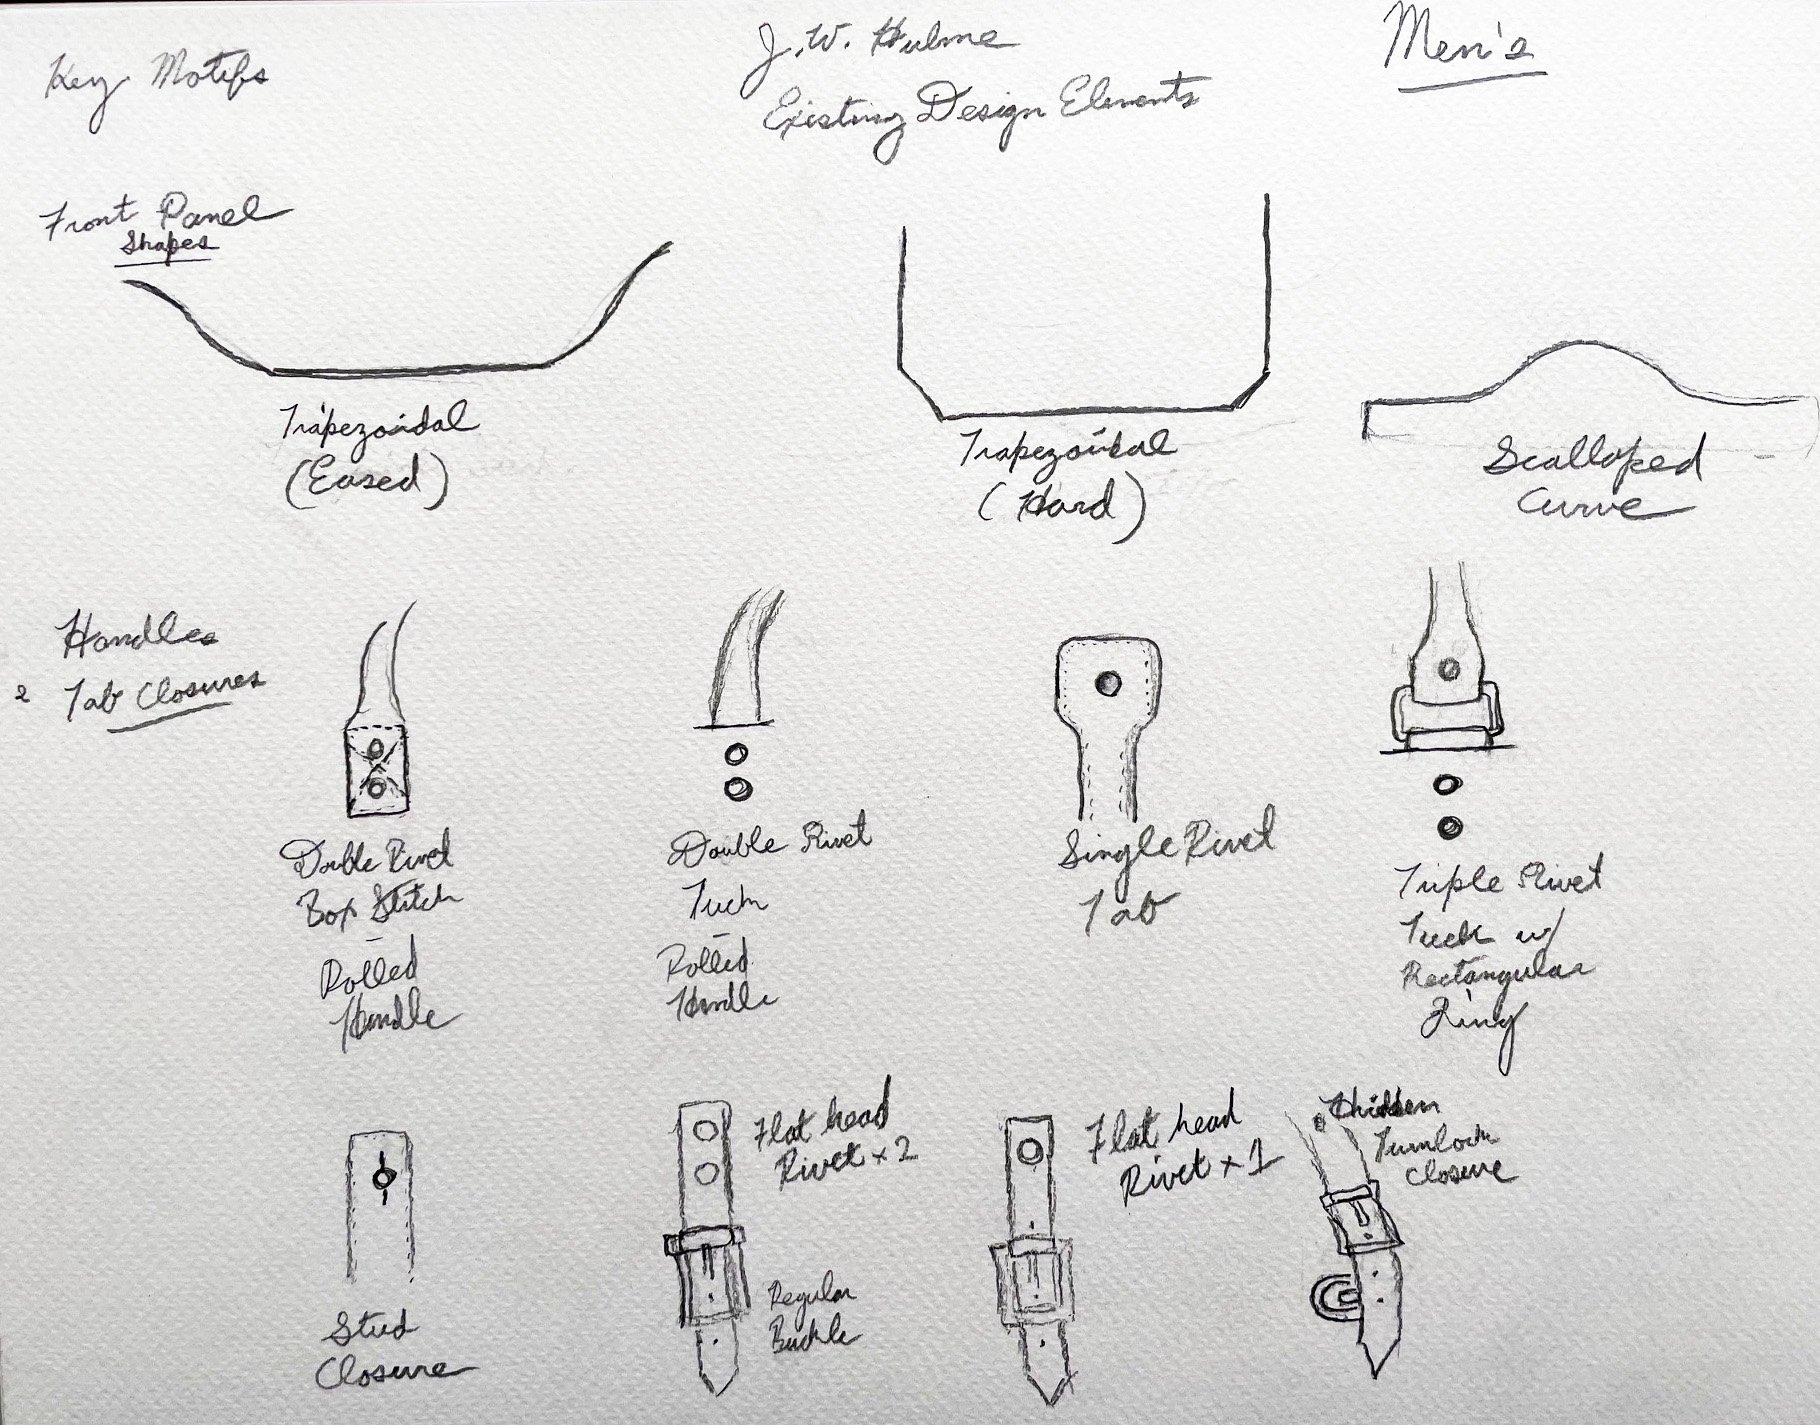 Key Motifs
J.W. Hulme
Existing Design Elements
Men's
Front Panel
Shapes
Trapezoidal
(Eased)
Trapezoidal
(Hard)
Scalloped
Curve
Handles
& Tab Closures
Double Rivet
Box Stitch
-
Rolled
Handle
Double Rivet
Tuck
-
Rolled
Handle
Single Rivet
Tab
Triple Rivet
Tuck w/
Rectangular
Ring
Stud
Closure
Flat head
Rivet x 2
Regular
Buckle
Flat head
Rivet x 1
Hidden
Turnlock
Closure